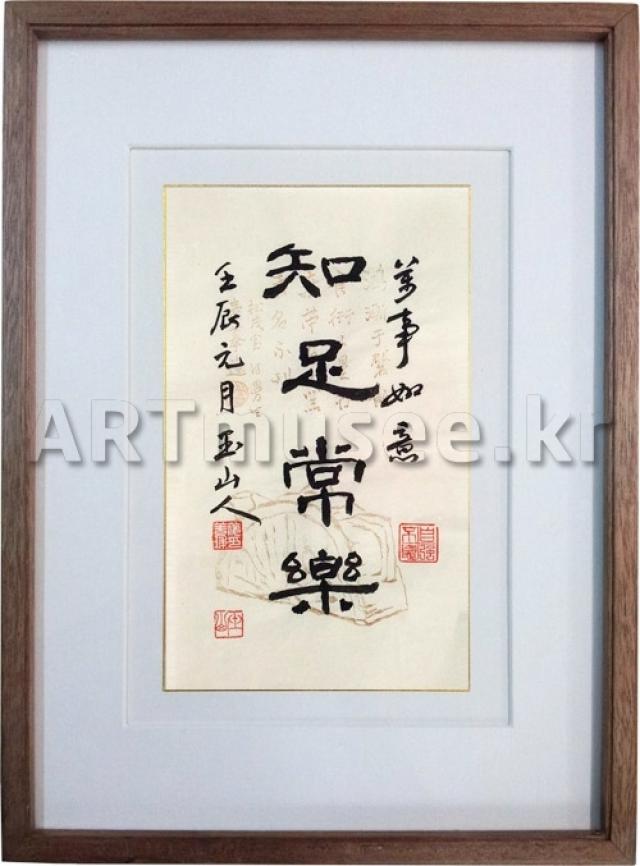 萬事如意
知足常樂
壬辰元月玉山人
ARTmusee.kr